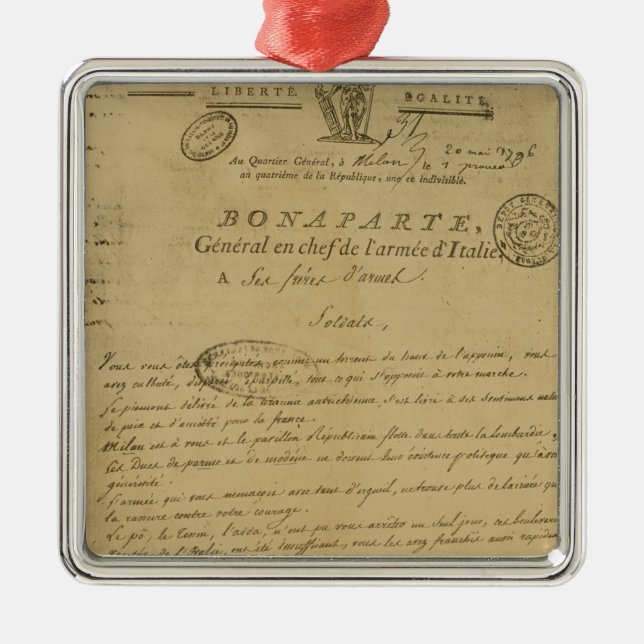 LIBERTÉ. ÉGALITÉ.
20 mai 1796
Au Quartier Général, à Milan le 1 prairial
au quatrième de la République, une et indivisible.
BONAPARTE,
Général en chef de l'armée d'Italie.
A Ses frères d'armes.
Soldats,
Vous vous êtes précipités, comme un torrent du haut de l'apennin, vous
avez culbuté, dispersé, éparpillé, tout ce qui s'opposoit à votre marche.
Le piemont délivré de la tirannie autrichienne s'est livré à ses sentimens natu
de paix et d'amitié pour la france.
Milan est à vous et le pavillon Républicain flotte dans toute la Lombardie.
Les Ducs de parme et de modène ne doivent leur existence politique qu'à vo
générosité.
L'armée qui vous menaçoit avec tant d'orgueil, ne trouve plus de barrière qu
la rassure contre votre courage.
Le pô, le Tesin, l'adda, n'ont pu vous arrêter un seul jour, ces boulevar
de l'Italie, ont été insuffisans, vous les avez franchis aussi rapidem